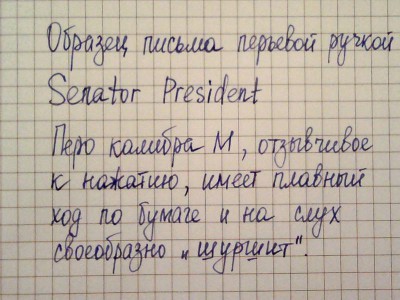 Образец письма перьевой ручкой
Senator President
Перо калибра М, отзывчивое
к нажатию, имеет плавный
ход по бумаге и на слух
своеобразно „шуршит".